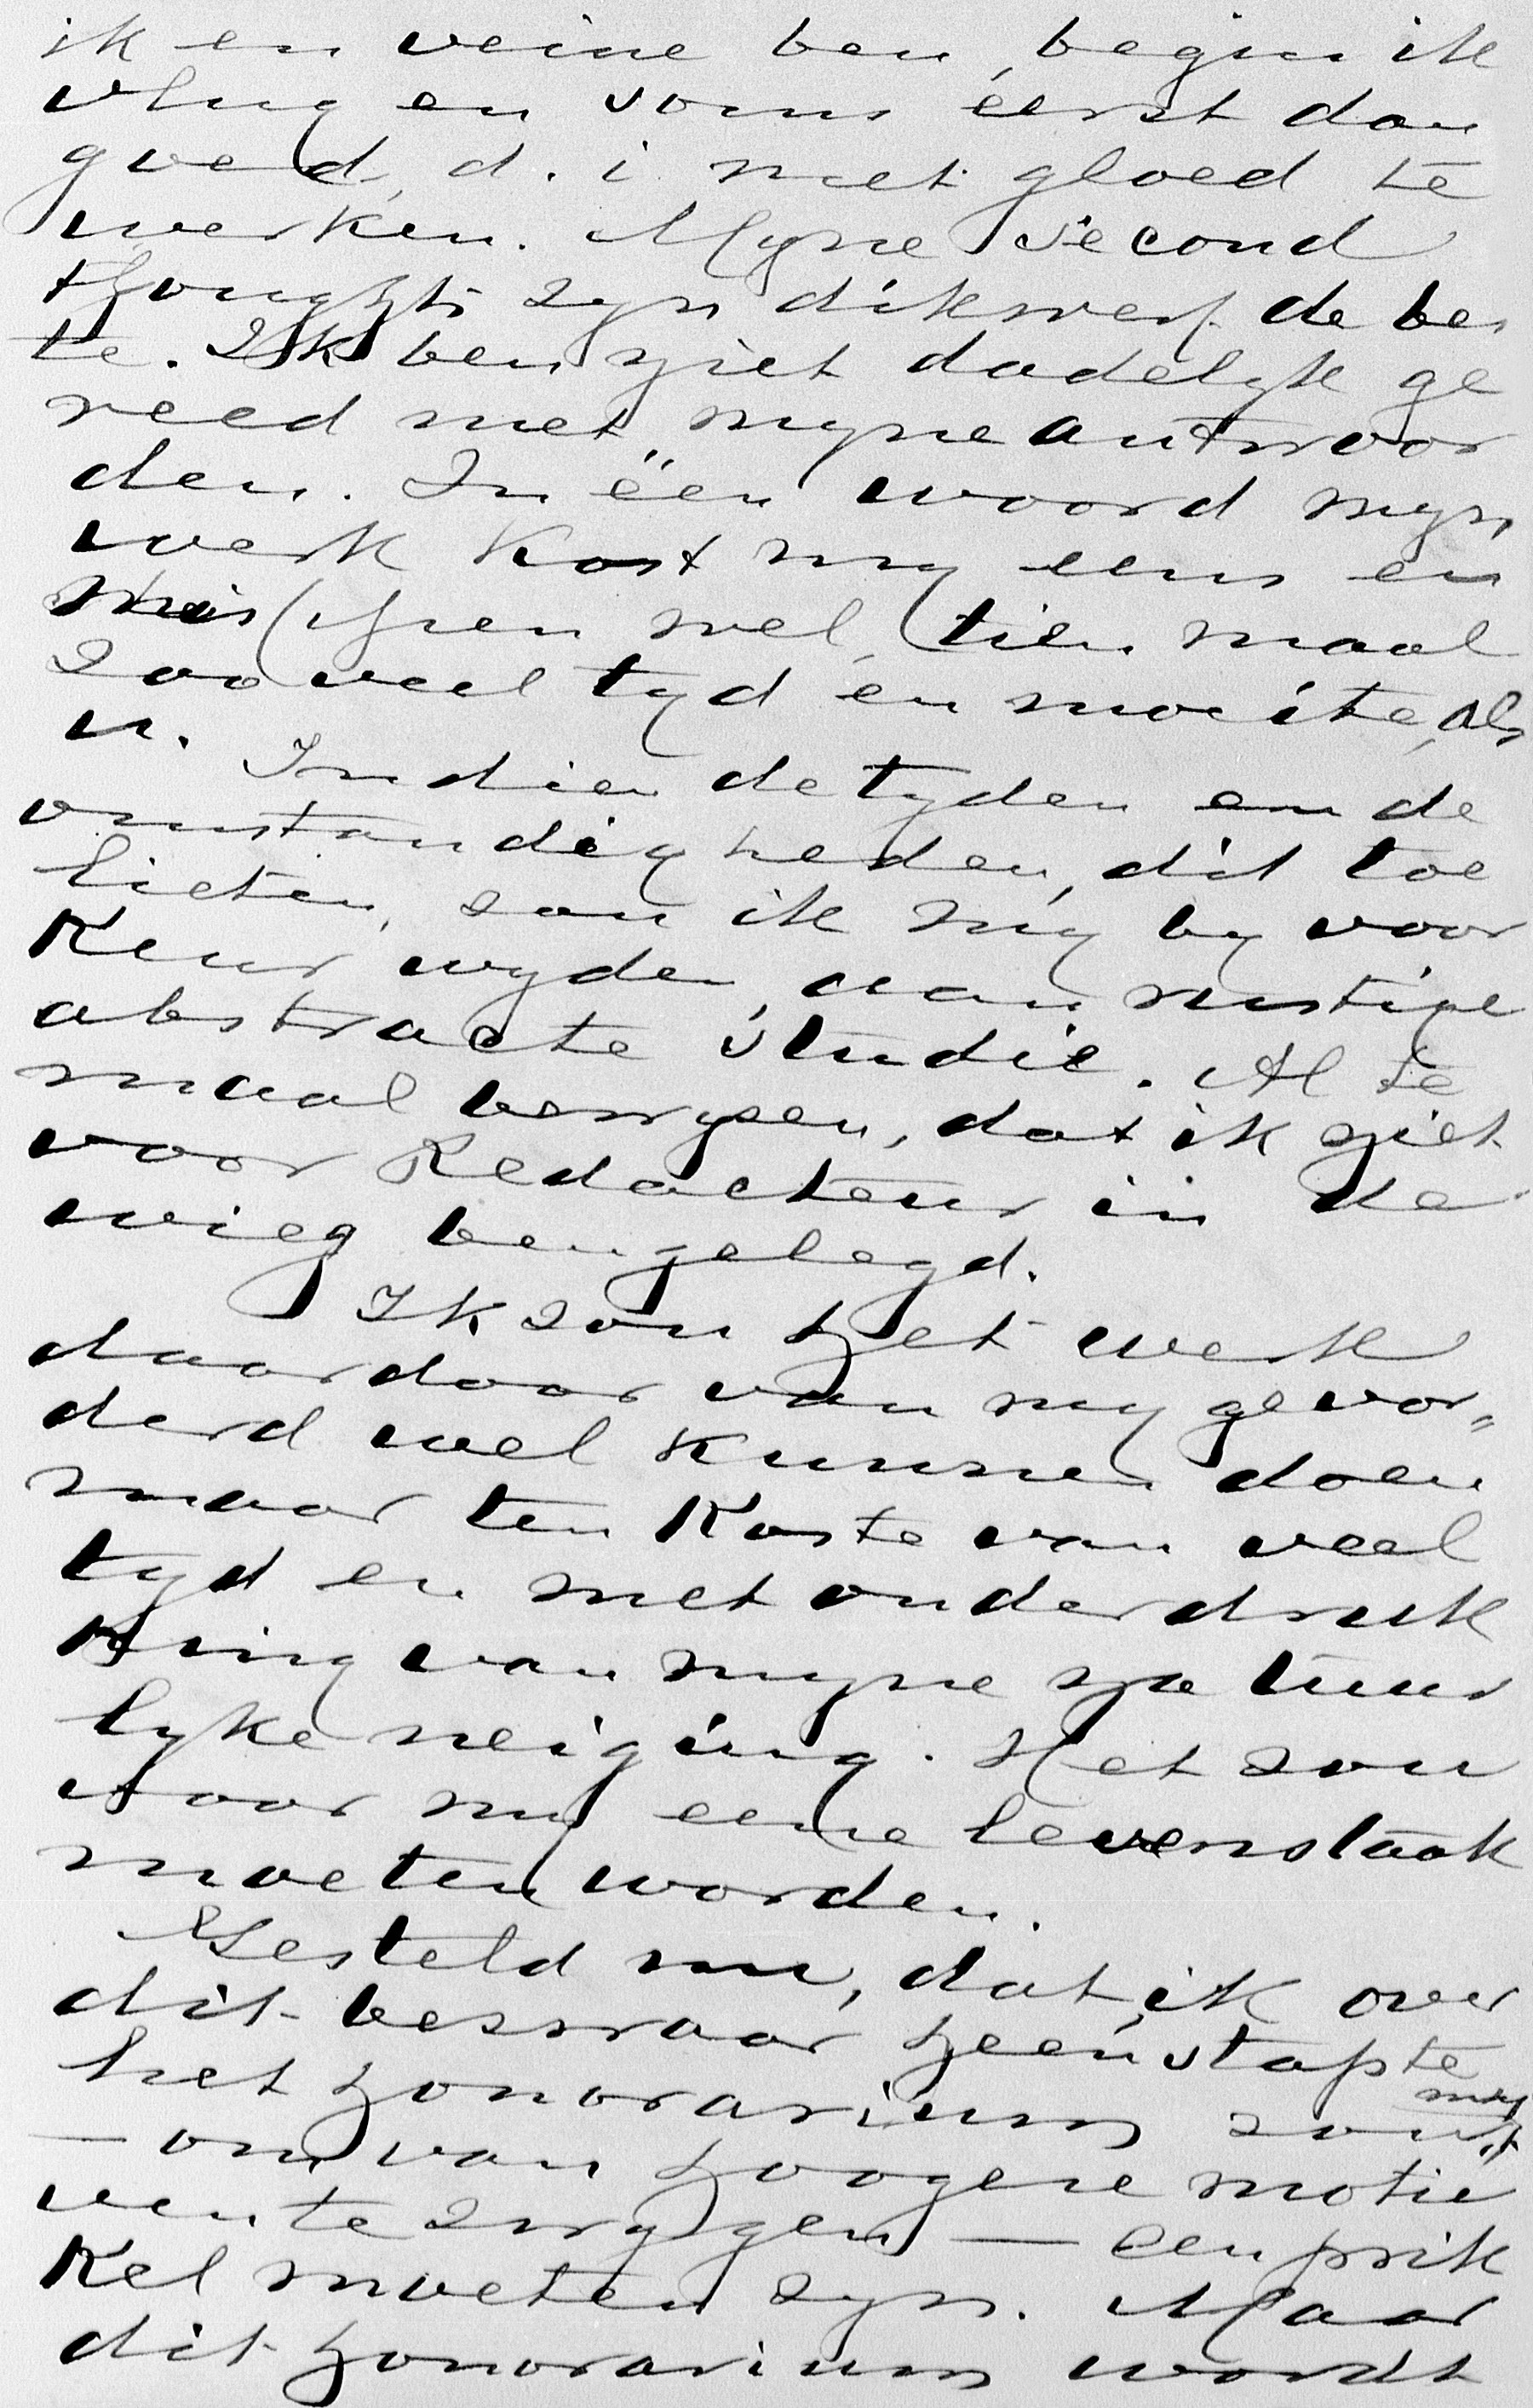 ik en veine ben, begin ik
vlug en soms éérst dan
goed, d. i. met gloed te
werken. Myne second
thoughts zyn dikwerf de bes
te. Ik ben niet dadelyk ge
reed met myne antwoor
den. In één woord myn
werk kost my eens en
misschien wel tien maal
zooveel tyd en moeite, als
u. Indien de tyden en de
omstandigheden dit toe
lieten, zou ik my by voor
keur wyden aan rustige
abstracte studie. Al te
maal bewyzen, dat ik niet
voor Redacteur in de
wieg ben gelegd.
Ik zou het werk
daardoor van my gevor„
derd wel kunnen doen
maar ten koste van veel
tyd en met onderdruk
king van myne natuur
lyke neiging. Het zou
voor my eene levenstaak
moeten worden.
Gesteld nu, dat ik over
dit bezwaar heenstapte
het honorarium zou my
— om van hoogere motie
ven te zwygen — een prik
kel moeten zyn. Maar
dit honorarium wordt